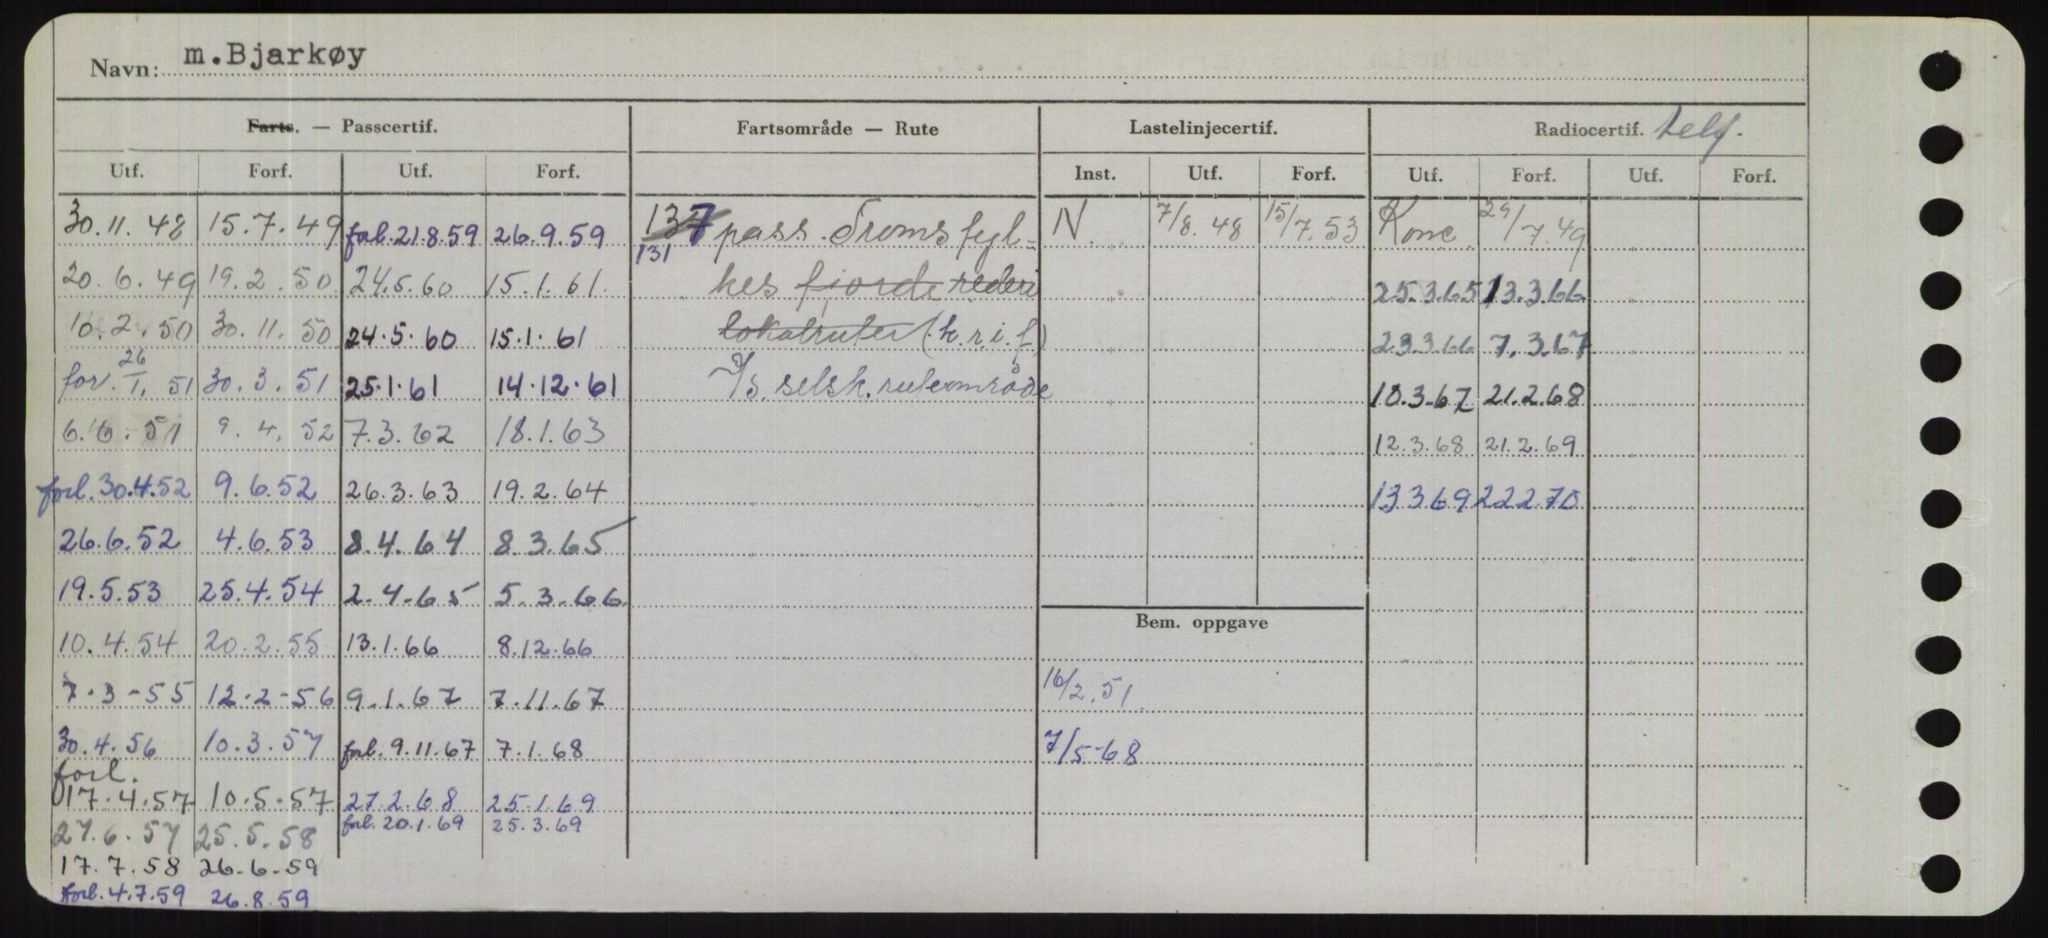 Navn: m.Bjarkøy
Farts. — Passcertif. Fartsområde — Rute Lastelinjecertif. Radiocertif. telf.
Utf. Forf. Utf. Forf. Inst. Utf. Forf. Utf. Forf. Utf. Forf.
30.11.48 15.7.49 forl.21.8.59 26.9.59 137 pass. Troms fyl= N 7/8.48 15/7.53 Konc 29/7.49
131
20.6.49 19.2.50 24.5.60 15.1.61 kes fjorde rederi 25.3.65 13.3.66
10.2.50 30.11.50 24.5.60 15.1.61 lokalruter (k.r.i.f) 23.3.66 7.3.67
forl. 26/1.51 30.3.51 25.1.61 14.12.61 selsk. ruteområde 10.3.67 21.2.68
6.6.51 9.4.52 7.3.62 18.1.63 12.3.68 21.2.69
forl.30.4.52 9.6.52 26.3.63 19.2.64 13369 22270
26.6.52 4.6.53 8.4.64 8.3.65
19.5.53 25.4.54 2.4.65 5.3.66
Bem. oppgave
10.4.54 20.2.55 13.1.66 8.12.66
7.3-55 12.2-56 9.1.67 7.11.67 16/2.51
30.4.56 10.3.57 forl.9.11.67 7.1.68 7/5-68
forl.
17.4.57 10.5.57 27.2.68 25.1.69
27.6.57 25.5.58 forl.20.1.69 25.3.69
17.7.58 26.6.59
forl.4.7.59 26.8.59